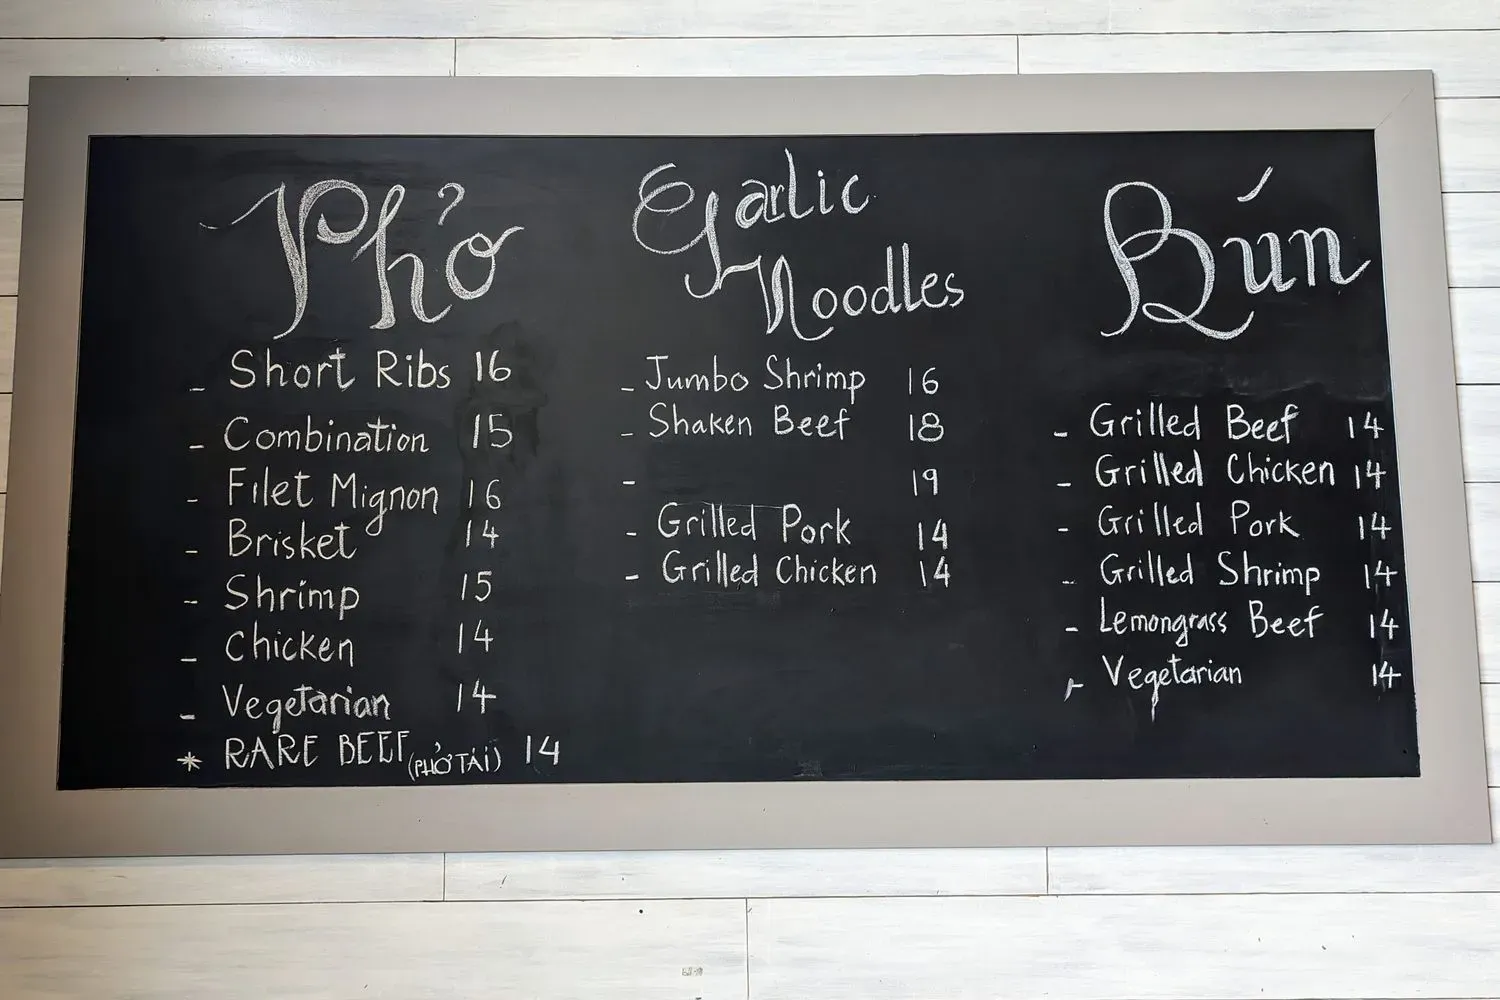 Phở
- Short Ribs 16
- Combination 15
- Filet Mignon 16
- Brisket 14
- Shrimp 15
- Chicken 14
- Vegetarian 14
* RARE BEEF (PHỞ TÁI) 14
Garlic
Noodles
- Jumbo Shrimp 16
- Shaken Beef 18
- 19
- Grilled Pork 14
- Grilled Chicken 14
Bún
- Grilled Beef 14
- Grilled Chicken 14
- Grilled Pork 14
- Grilled Shrimp 14
- Lemongrass Beef 14
- Vegetarian 14